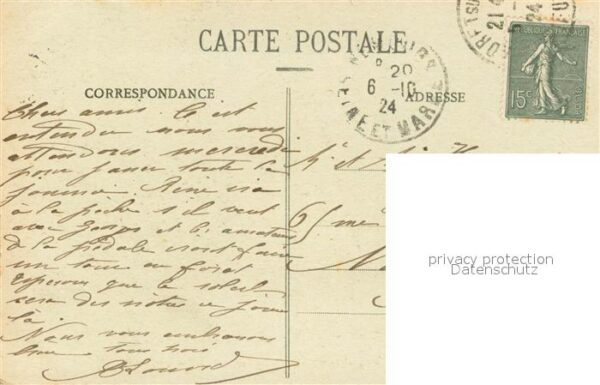 CARTE POSTALE
CORRESPONDANCE
ADRESSE
20
6 -10
24
SEINE ET MARNE
21
24
REPUBLIQUE FRANÇAISE
15c
POSTES
Chers amis. C'est
entendu nous vous
attendons mercredi
pour passer toute la
journée. René ira
à la pêche s'il veut
avec Georges et les amateurs
de la pédale iront faire
un tour en forêt
Espérons que le soleil
sera des nôtres ce jour
là.
Nous vous embrassons
bien tous trois.
M et
65
privacy protection
Datenschutz